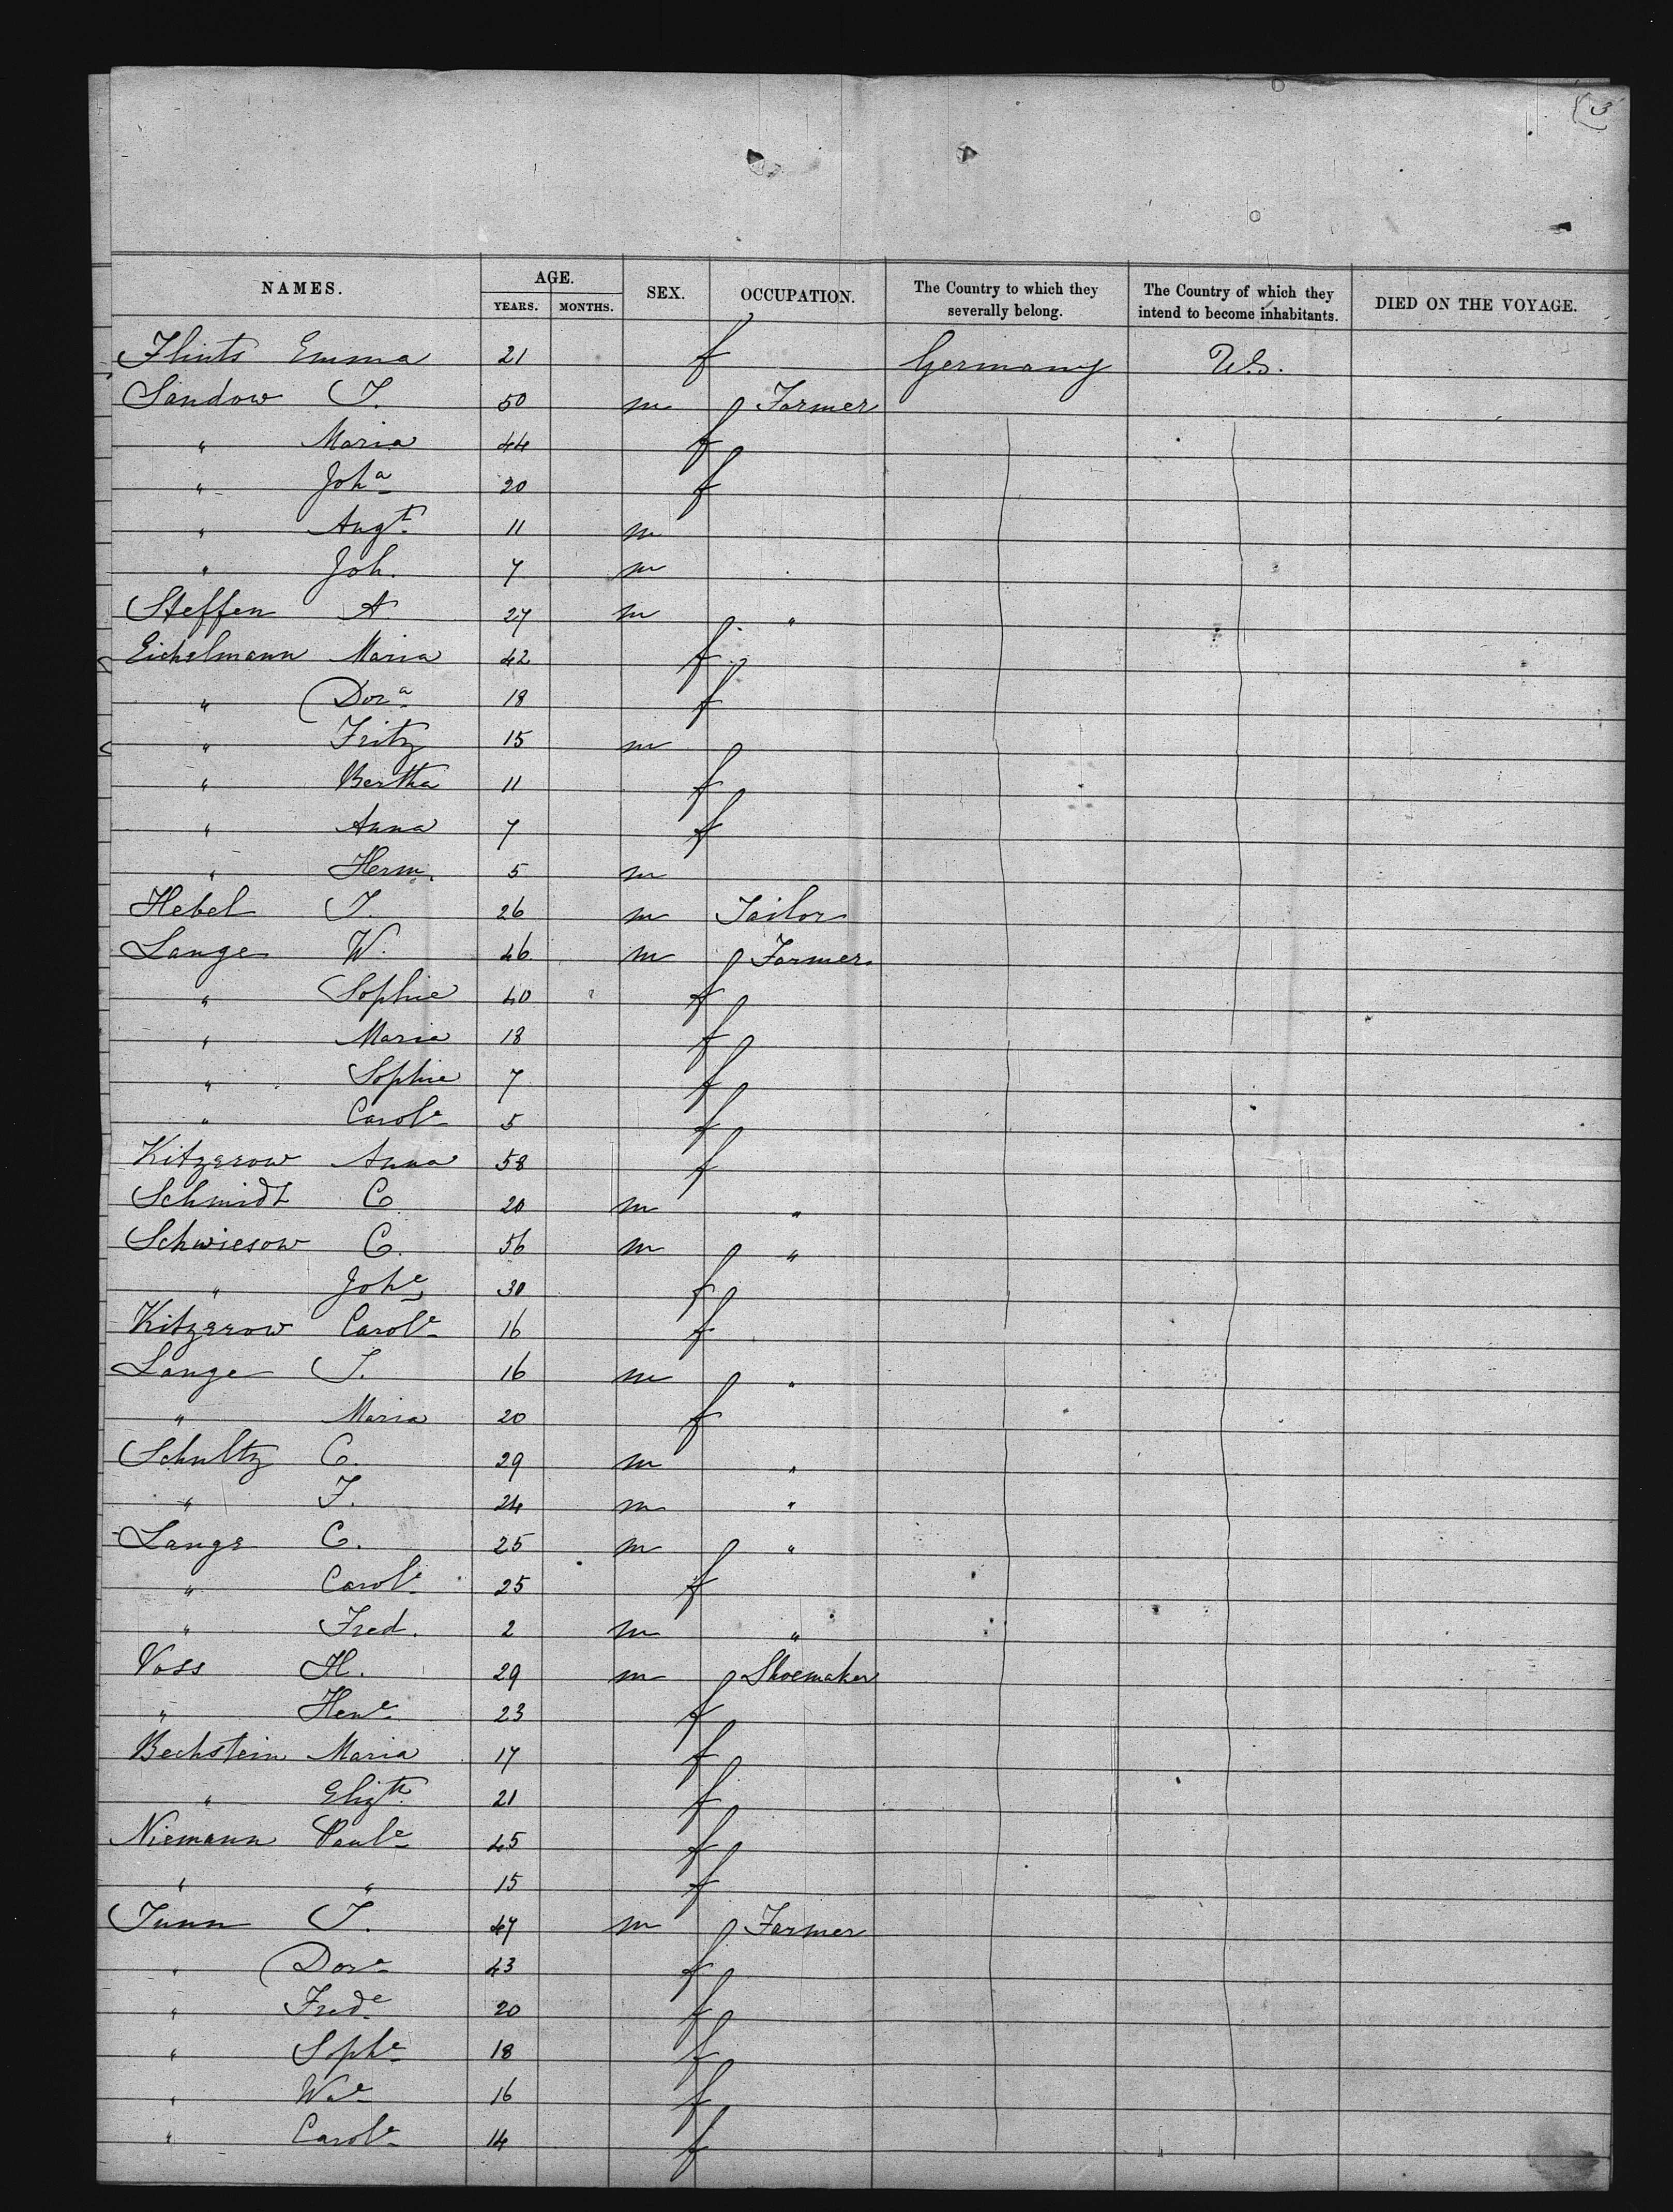 3
NAMES. AGE. SEX. OCCUPATION. The Country to which they severally belong. The Country of which they intend to become inhabitants. DIED ON THE VOYAGE.
YEARS. MONTHS.
Flints Emma 21 f Germany U.S.
Sandow J. 50 m Farmer
" Maria 44 f
" Joha 20 f
" Augt 11 m
" Joh. 7 m
Steffen A. 27 m "
Eichelmann Maria 42 f
" Dora 18 f
" Fritz 15 m
" Bertha 11 f
" Anna 7 f
" Herm. 5 m
Hebel J. 26 m Tailor
Lange W. 46 m Farmer
" Sophie 40 f
" Maria 18 f
" Sophie 7 f
" Carole 5 f
Kitzerow Anna 58 f
Schmidt C. 20 m "
Schwiesow C. 56 m "
" Johe 30 f
Kitzerow Carole 16 f
Lange J. 16 m "
" Maria 20 f
Schultz C. 29 m "
" F. 24 m "
Lange C. 25 m "
" Carole 25 f
" Fred. 2 m "
Voss H. 29 m Shoemaker
" Hene 23 f
Bechstein Maria 17 f
" Elizth 21 f
Niemann Paule 45 f
" " 15 f
J. 47 m Farmer
" Dore 43 f
" Frede 20 f
" Sophe 18 f
" 16 f
" Carole 14 f